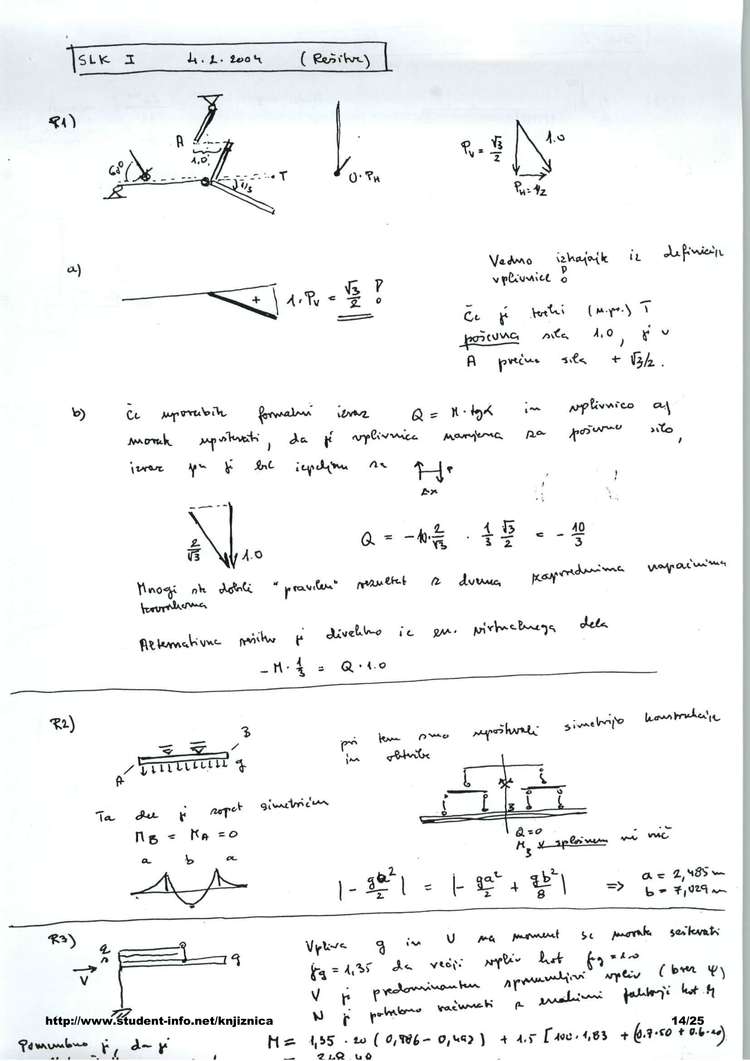 SLK I 4.2.2004 (Rešitve)
R1)
A
1,0
60°
1/3
T
0·P_H
P_V = √3/2
1.0
P_H = 1/2
a)
+
1·P_V = √3/2 !
Vedno izhajajte iz definicije
vplivnice !
Če je točki (n.pr.) T
poševna sila 1.0, je v
A prečna sila + √3/2.
b) Če uporabite formalni izraz Q = M·tgα in vplivnico a)
morate upoštevati, da je vplivnica narejena za poševno silo,
izraz pa je bil izpeljan za
Δx
2/√3
1.0
Q = -10·2/√3 · 1/3 √3/2 = - 10/3
Mnogi ste dobili "pravilen" rezultat z dvema zaporednima napačnima
korakoma
Alternativna rešitev je direktno iz en. virtualnega dela
-M·1/3 = Q·1.0
R2)
A
B
g
pri tem smo upoštevali simetrijo konstrukcije
in obtežbe
B
Q=0
M_B v splošnem ni nič
Ta del je zopet simetričen
M_B = M_A = 0
a b a
|- ga²/2| = |- ga²/2 + gb²/8| => a = 2,485 m
b = 7,029 m
R3)
g
V
Vpliva g in U na moment se morata seštevati
γg = 1,35 da večji vpliv kot γg = 1.0
V je predominanten spremenljivi vpliv (brez ψ)
N je potrebno računati z enakimi faktorji kot M
http://www.student-info.net/knjiznica
14/25
M = 1,35 · 20 (0,986 - 0,492) + 1.5 [100·1,83 + (0.7·50 + 0.6·20)